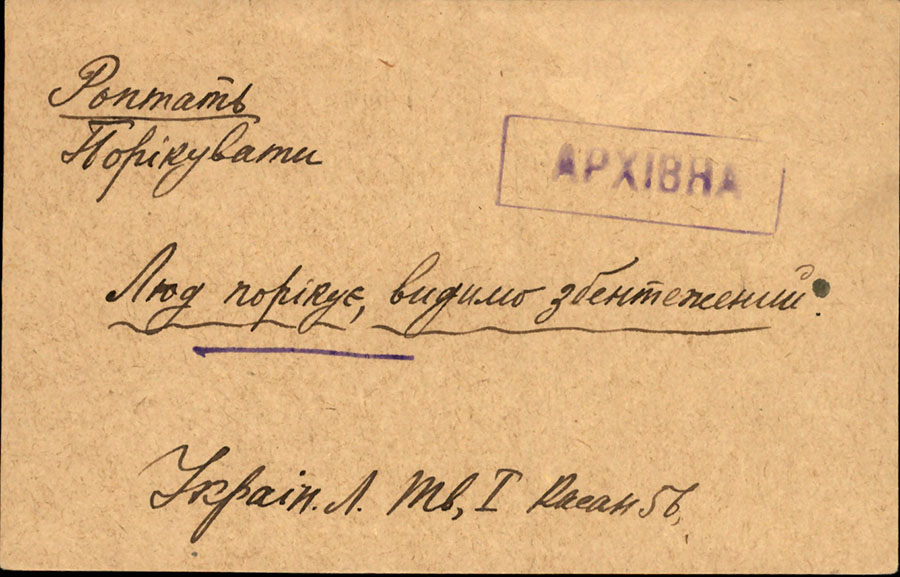 Роптать
Порікувати
АРХІВНА
Люд порікує, видимо збентежений.
Україн. Л. Тв, I Касан 56.